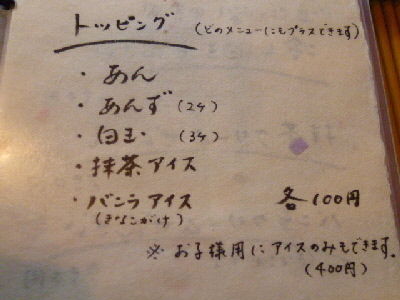 トッピング (どのメニューにもプラスできます)
・あん
・あんず (2ケ)
・白玉 (3ケ)
・抹茶アイス
・バニラアイス 各100円
(きなこがけ)
※ お子様用にアイスのみもできます。
(400円)